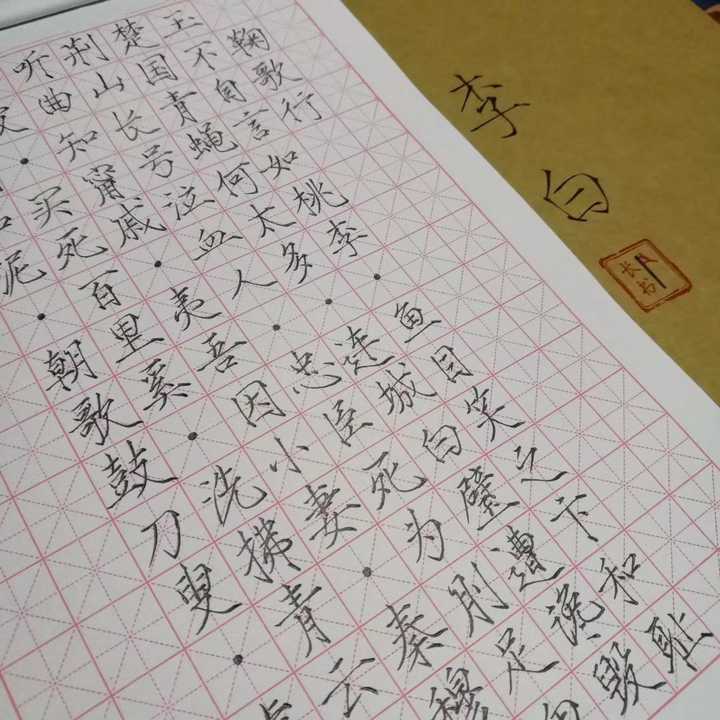 鞠歌行
玉不自言如桃李·鱼目笑之卞和耻
楚国青蝇何太多·连城白璧遭谗毁
荆山长号泣血人·忠臣死为刖足
听曲知甯戚·夷吾因小妻·秦穆
皮·买死百里奚·洗拂青云
如泥·朝歌鼓刀叟·
李白